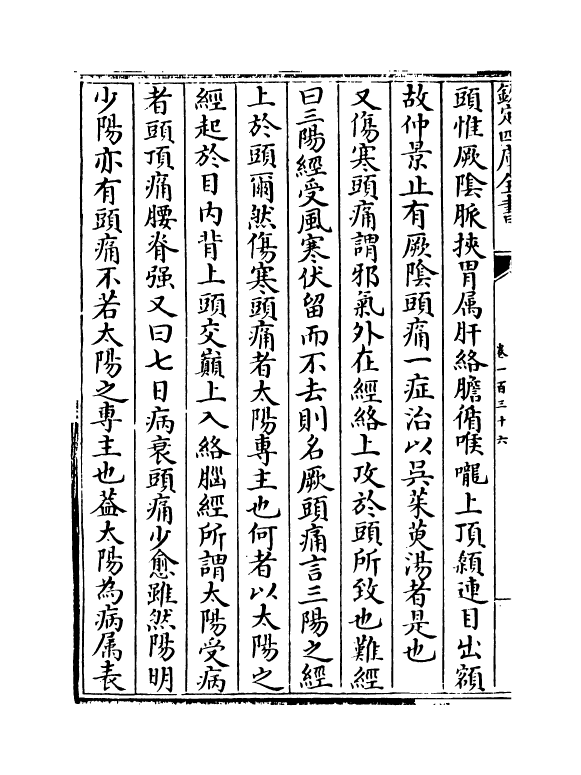 欽定四庫全書
卷一百三十六
頭惟厥陰脈挾胃属肝絡膽循喉嚨上頂顙連目出額
故仲景止有厥隂頭痛一症治以呉茱萸湯者是也
又傷寒頭痛謂邪氣外在經絡上攻於頭所致也難經
曰三陽經受風寒伏留而不去則名厥頭痛言三陽之經
上於頭爾然傷寒頭痛者太陽専主也何者以太陽之
經起於目内背上頭交巔上入絡腦經所謂太陽受病
者頭頂痛腰脊强又曰七日病衰頭痛少愈雖然陽明
少陽亦有頭痛不若太陽之専主也葢太陽為病属表